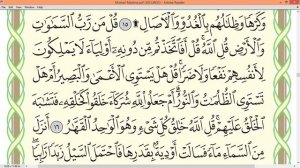 وَكَرْهًا وَظِلَٰلُهُم بِٱلْغُدُوِّ وَٱلْءَاصَالِ ۩ ١٥ قُلْ مَن رَّبُّ ٱلسَّمَٰوَٰتِ
وَٱلْأَرْضِ قُلِ ٱللَّهُ قُلْ أَفَٱتَّخَذْتُم مِّن دُونِهِۦٓ أَوْلِيَآءَ لَا يَمْلِكُونَ
لِأَنفُسِهِمْ نَفْعًا وَلَا ضَرًّا قُلْ هَلْ يَسْتَوِى ٱلْأَعْمَىٰ وَٱلْبَصِيرُ أَمْ هَلْ
تَسْتَوِى ٱلظُّلُمَٰتُ وَٱلنُّورُ أَمْ جَعَلُوا۟ لِلَّهِ شُرَكَآءَ خَلَقُوا۟ كَخَلْقِهِۦ فَتَشَٰبَهَ
ٱلْخَلْقُ عَلَيْهِمْ قُلِ ٱللَّهُ خَٰلِقُ كُلِّ شَىْءٍ وَهُوَ ٱلْوَٰحِدُ ٱلْقَهَّٰرُ ١٦ أَنزَلَ
مِنَ ٱلسَّمَآءِ مَآءً فَسَالَتْ أَوْدِيَةٌۢ بِقَدَرِهَا فَٱحْتَمَلَ ٱلسَّيْلُ زَبَدًا رَّابِيًا